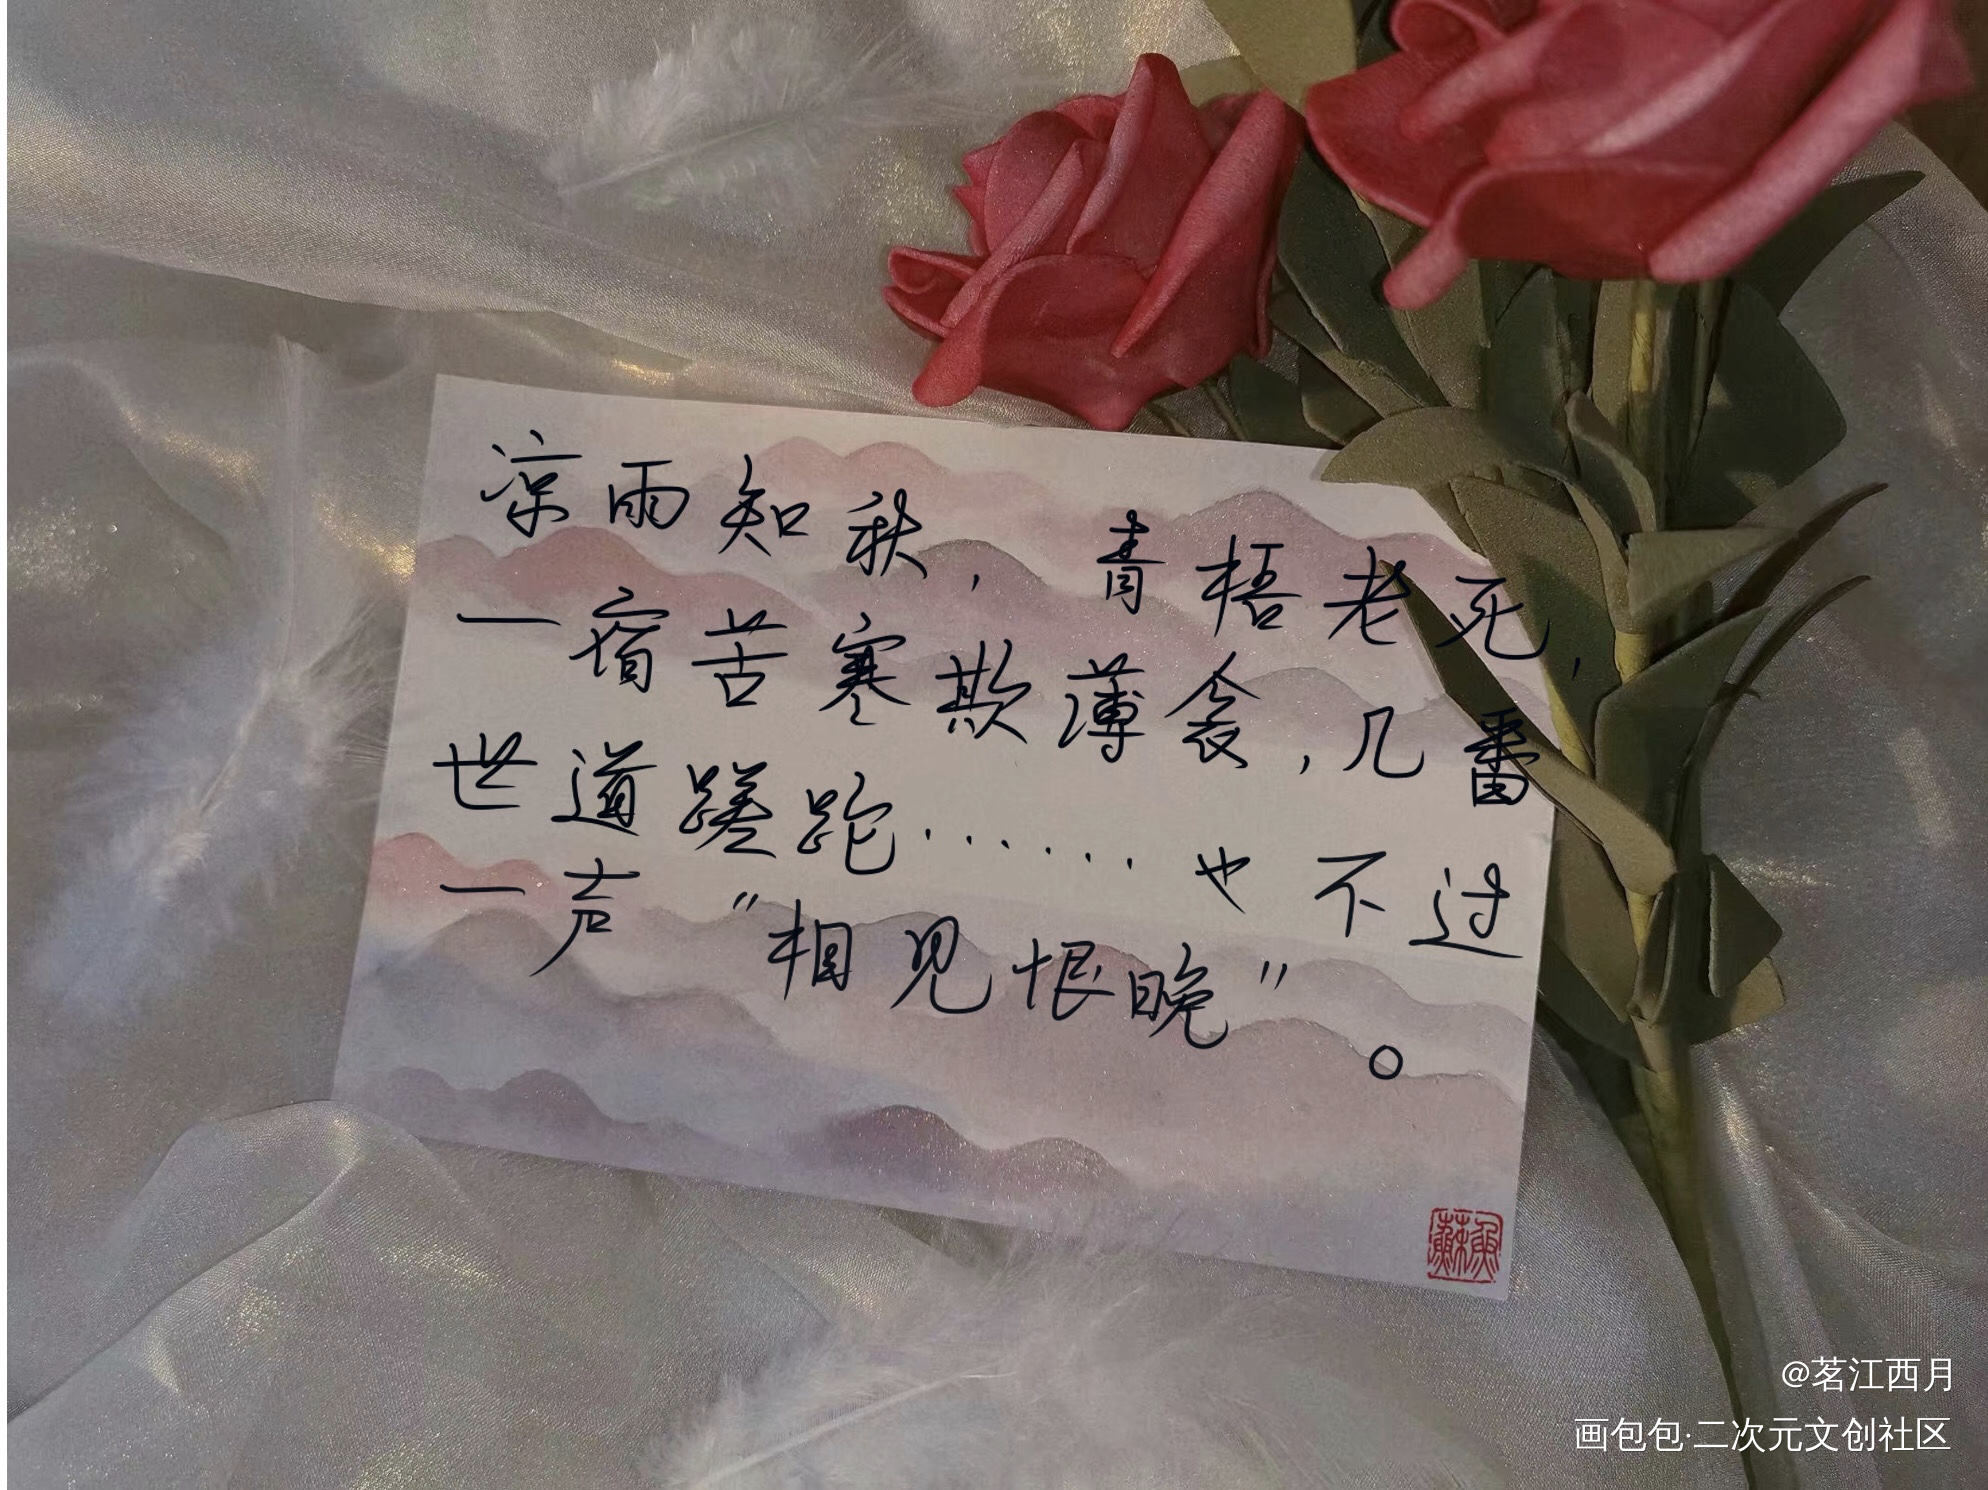 凉雨知秋，青梧老死，
一宿苦寒欺薄衾，几番
世道蹉跎……也不过
一声“相见恨晚”。
蘇魚
@茗江西月
画包包·二次元文创社区